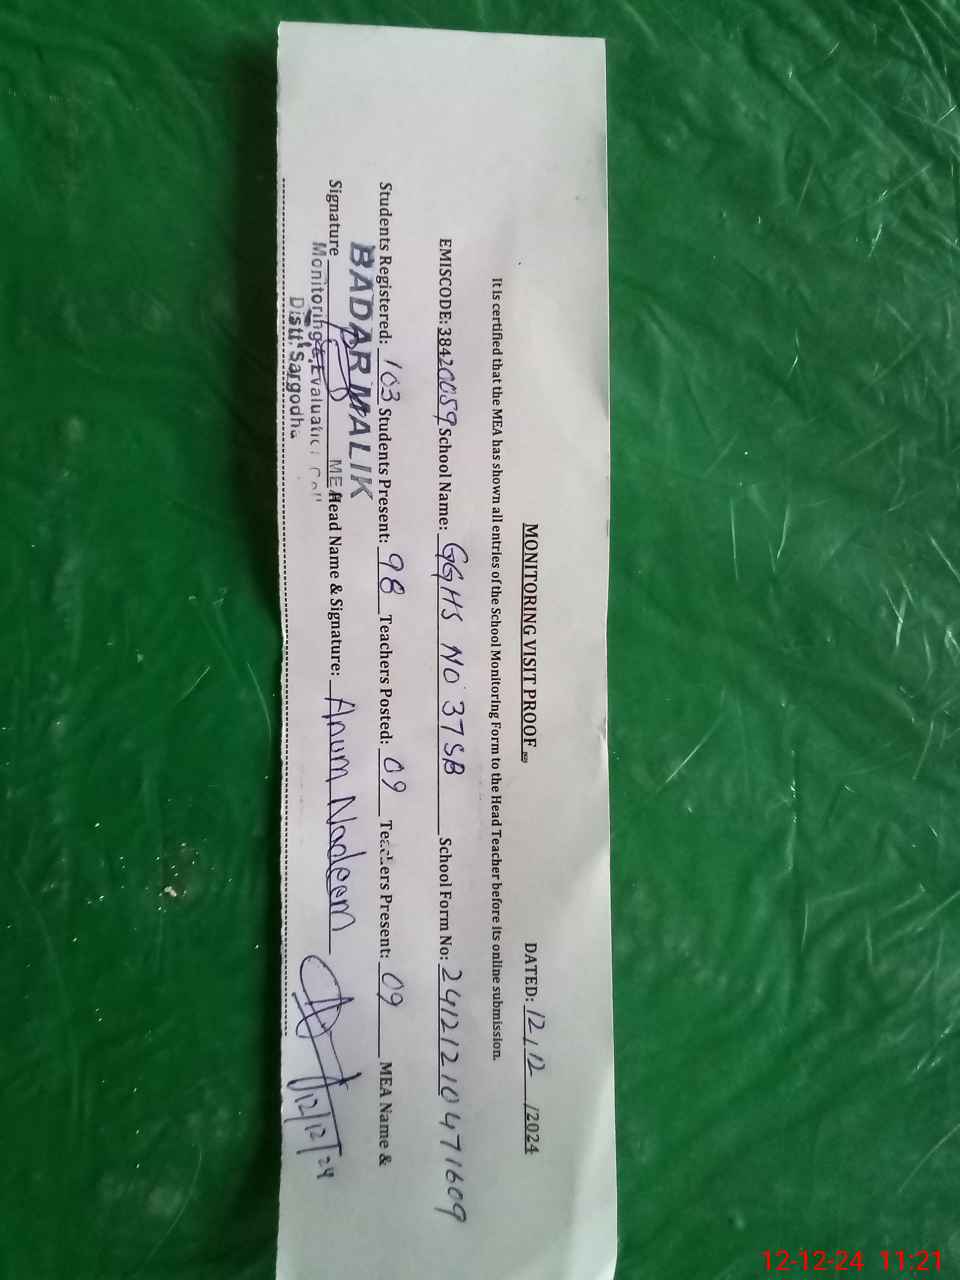 MONITORING VISIT PROOF DATED: 12/12 /2024
It is certified that the MEA has shown all entries of the School Monitoring Form to the Head Teacher before its online submission.
EMISCODE: 38420059 School Name: GGHS NO 37SB School Form No: 24121210471609
Students Registered: 103 Students Present: 98 Teachers Posted: 09 Teachers Present: 09 MEA Name &
BADAR MALIK
Signature MEA Head Name & Signature: Anum Nadeem
Monitoring & Evaluation Cell
Distt. Sargodha
12/12/24
12-12-24 11:21